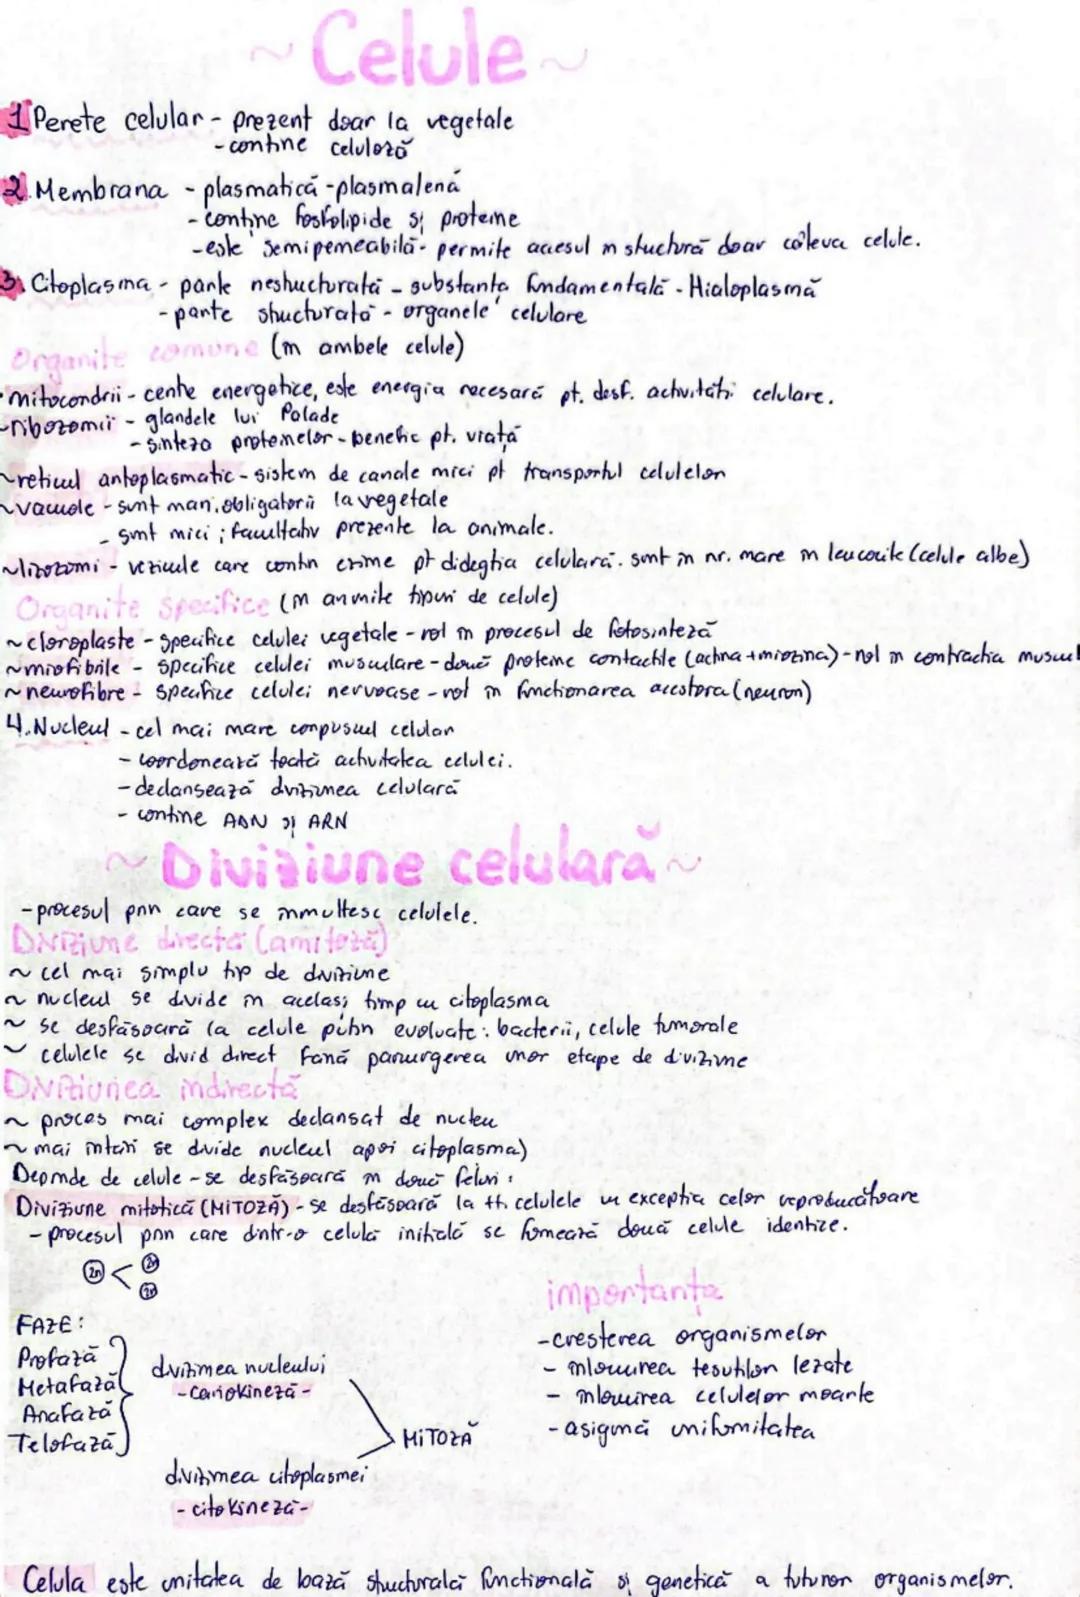 ~ Celule ~
1 Perete celular - prezent doar la vegetale
- contine celuloză
2. Membrana - plasmatică - plasmalenă
- contine fosfolipide și proteine
- este semipemeabilă - permite accesul în stuctură doar câteva celule.
3. Citoplasma - parte nestructurată - substanța fundamentală - Hialoplasmă
- parte structurată - organele celulare
Organite comune (în ambele celule)
• mitocondrii - centre energetice, este energia necesară pt. desf. activități celulare.
- ribozomii - glandele lui Palade
- sinteza proteinelor - benefic pt. viață
~ reticul antoplasmatic - sistem de canale mici pt transportul celulelor
~ vacuole - sunt mari, obligatorii la vegetale
- sunt mici; facultativ prezente la animale.
~ lizozomi - vezicule care contin enzime pt didegtia celulară. sunt în nr. mare în leucocite (celule albe)
Organite specifice (în anumite tipuri de celule)
~ cloroplaste - specifice celulei vegetale - rol în procesul de fotosinteză
~ miofibrile - specifice celulei musculare - două proteine contactile (actina + miozina) - rol în contractia muscul
~ neurofibre - specifice celulei nervoase - rol în functionarea acestora (neuron)
4. Nucleul - cel mai mare corpuscul celular
- coordonează toată activitatea celulei.
- declansează diviziunea celulară
- contine ADN și ARN
~ Diviziune celulară ~
- procesul prin care se inmultesc celulele.
Diviziune directă (amitoză)
~ cel mai simplu tip de diviziune
~ nucleul se divide în acelasi timp cu citoplasma
~ se desfășoară la celule puțin evoluate: bacterii, celule tumorale
~ celulele se divid direct fără parcurgerea unor etape de diviziune
Diviziunea indirectă
~ proces mai complex declansat de nucleu
~ mai intâi se divide nucleul apoi citoplasma)
Depinde de celule - se desfășoară în două feluri:
Diviziune mitotică (MITOZĂ) - se desfășoară la tt. celulele cu exceptia celor reproducătoare
- procesul prin care dintr-o celulă initială se fomează două celule identice.
2n < 2n
2n
importanța
FAZE:
Profază
Metafază
Anafază
Telofază
diviziunea nucleului
- cariokineză -
diviziunea citoplasmei
- citokineză -
MITOZĂ
- cresterea organismelor
- inlocuirea tesutilor lezate
- inlocuirea celulelor moarte
- asigură uniformitatea
Celula este unitatea de bază structurală functională și genetică a tuturor organismelor.